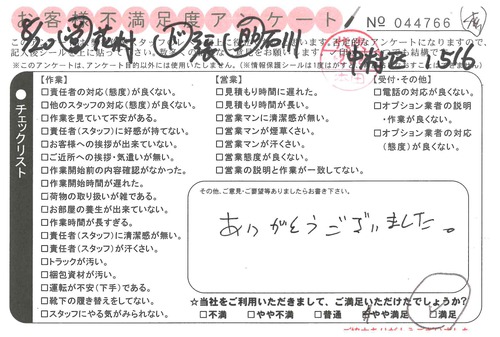 お客様不満足度アンケート
No 044766
8/20 営 花村 下 張 助 石川 中村区 1516
※このアンケートは、アンケート目的以外には使用いたしません。
チェックリスト
【作業】
□責任者の対応(態度)が良くない。
□他のスタッフの対応(態度)が良くない。
□作業を見ていて不安がある。
□責任者(スタッフ)に好感が持てない。
□お客様への挨拶が出来ていない。
□ご近所への挨拶・気遣いが無い。
□作業開始前の内容確認がなかった。
□作業開始時間が遅れた。
□荷物の取り扱いが雑である。
□お部屋の養生が出来ていない。
□作業時間が長すぎる。
□責任者(スタッフ)に清潔感が無い。
□責任者(スタッフ)が汗くさい。
□トラックが汚い。
□梱包資材が汚い。
□運転が不安(下手)である。
□靴下の履き替えをしてない。
□スタッフにやる気がみられない。
【営業】
□見積もり時間に遅れた。
□見積もり時間が長い。
□営業マンに清潔感が無い。
□営業マンが煙草くさい。
□営業マンが汗くさい。
□営業態度が良くない。
□営業の説明と作業が一致してない。
【受付・その他】
□電話の対応が良くない。
□オプション業者の説明
・作業が良くない。
□オプション業者の対応
(態度)が良くない。
その他、ご意見・ご要望等ありましたらお書き下さい。
ありがとうございました。
☆当社をご利用いただきまして、ご満足いただけたでしょうか?
□不満 □やや不満 □普通 □やや満足 □満足